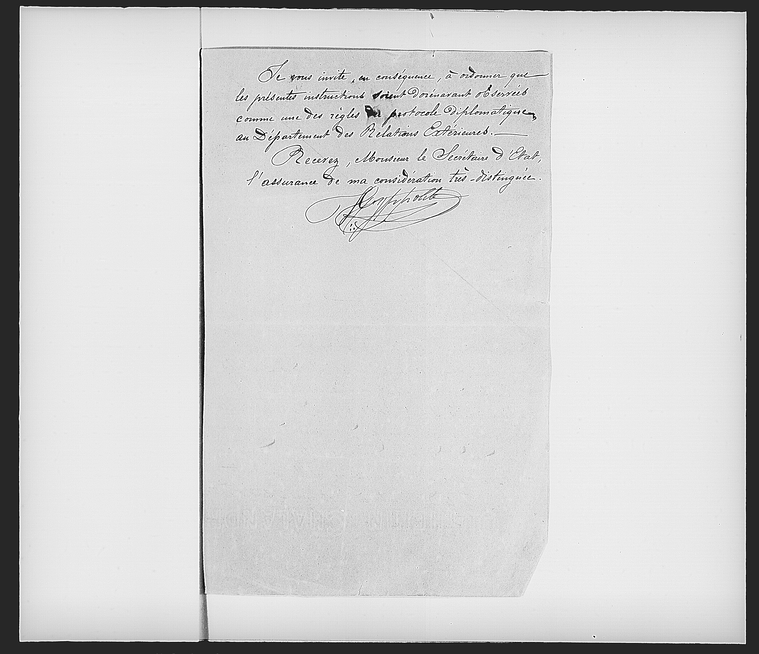 Je vous invite, en conséquence, à ordonner que
les présentes instructions soient dorénavant observées
comme une des règles du protocole diplomatique,
au Département des Relations Extérieures. —
Recevez, Monsieur le Secrétaire d'Etat,
l'assurance de ma considération très-distinguée.
Hyppolite